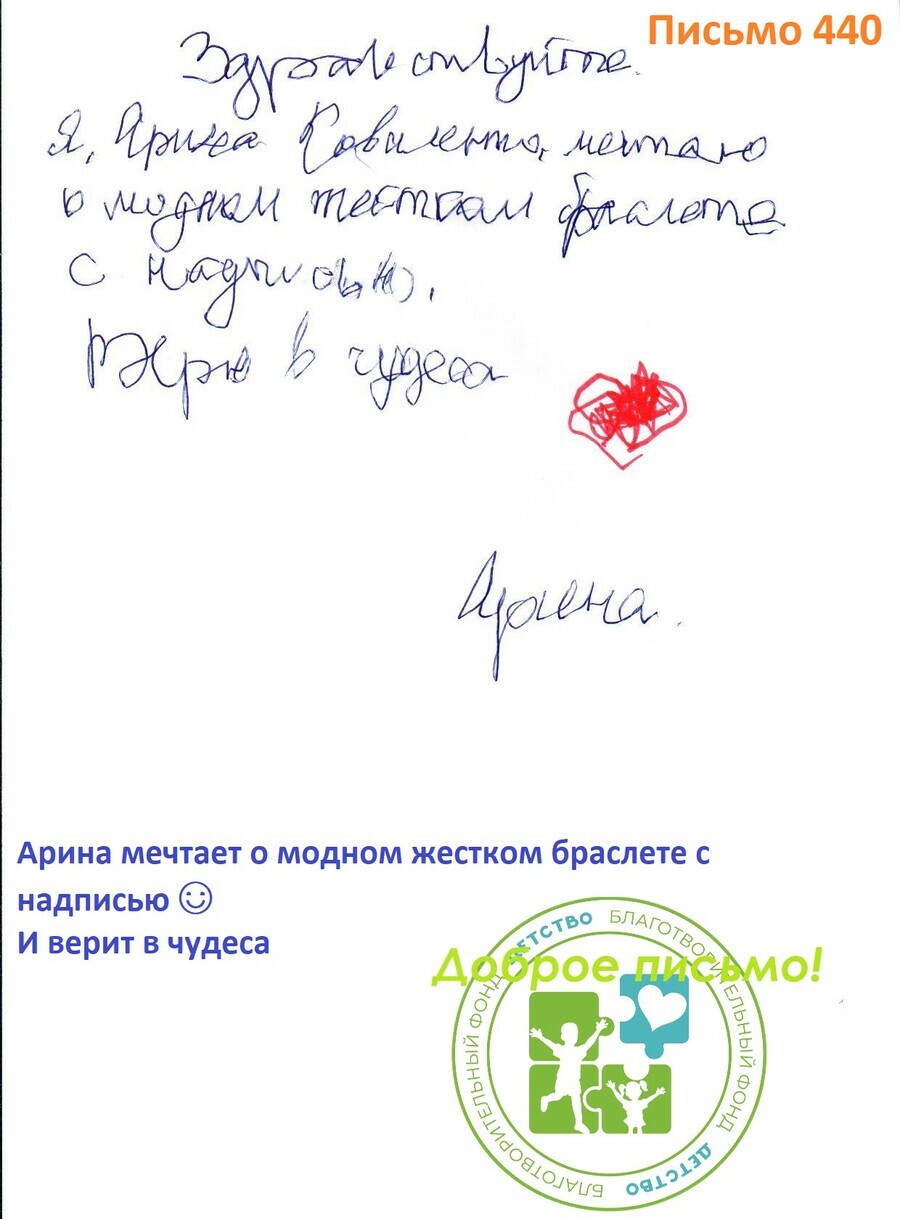 Письмо 440
Здравствуйте.
Я, Арина Коваленко, мечтаю
о модном жестком браслете
с надписью.
Верю в чудеса
Арина.
Арина мечтает о модном жестком браслете с
надписью ☺
И верит в чудеса
Доброе письмо!
БЛАГОТВОРИТЕЛЬНЫЙ ФОНД ДЕТСТВО БЛАГОТВОРИТЕЛЬНЫЙ ФОНД ДЕТСТВО